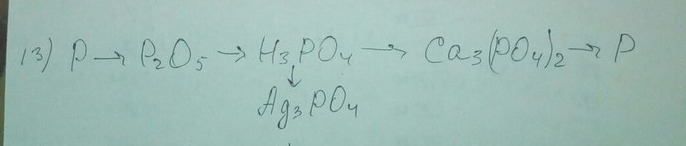 13) P → P₂O₅ → H₃PO₄ → Ca₃(PO₄)₂ → P
↓
Ag₃PO₄